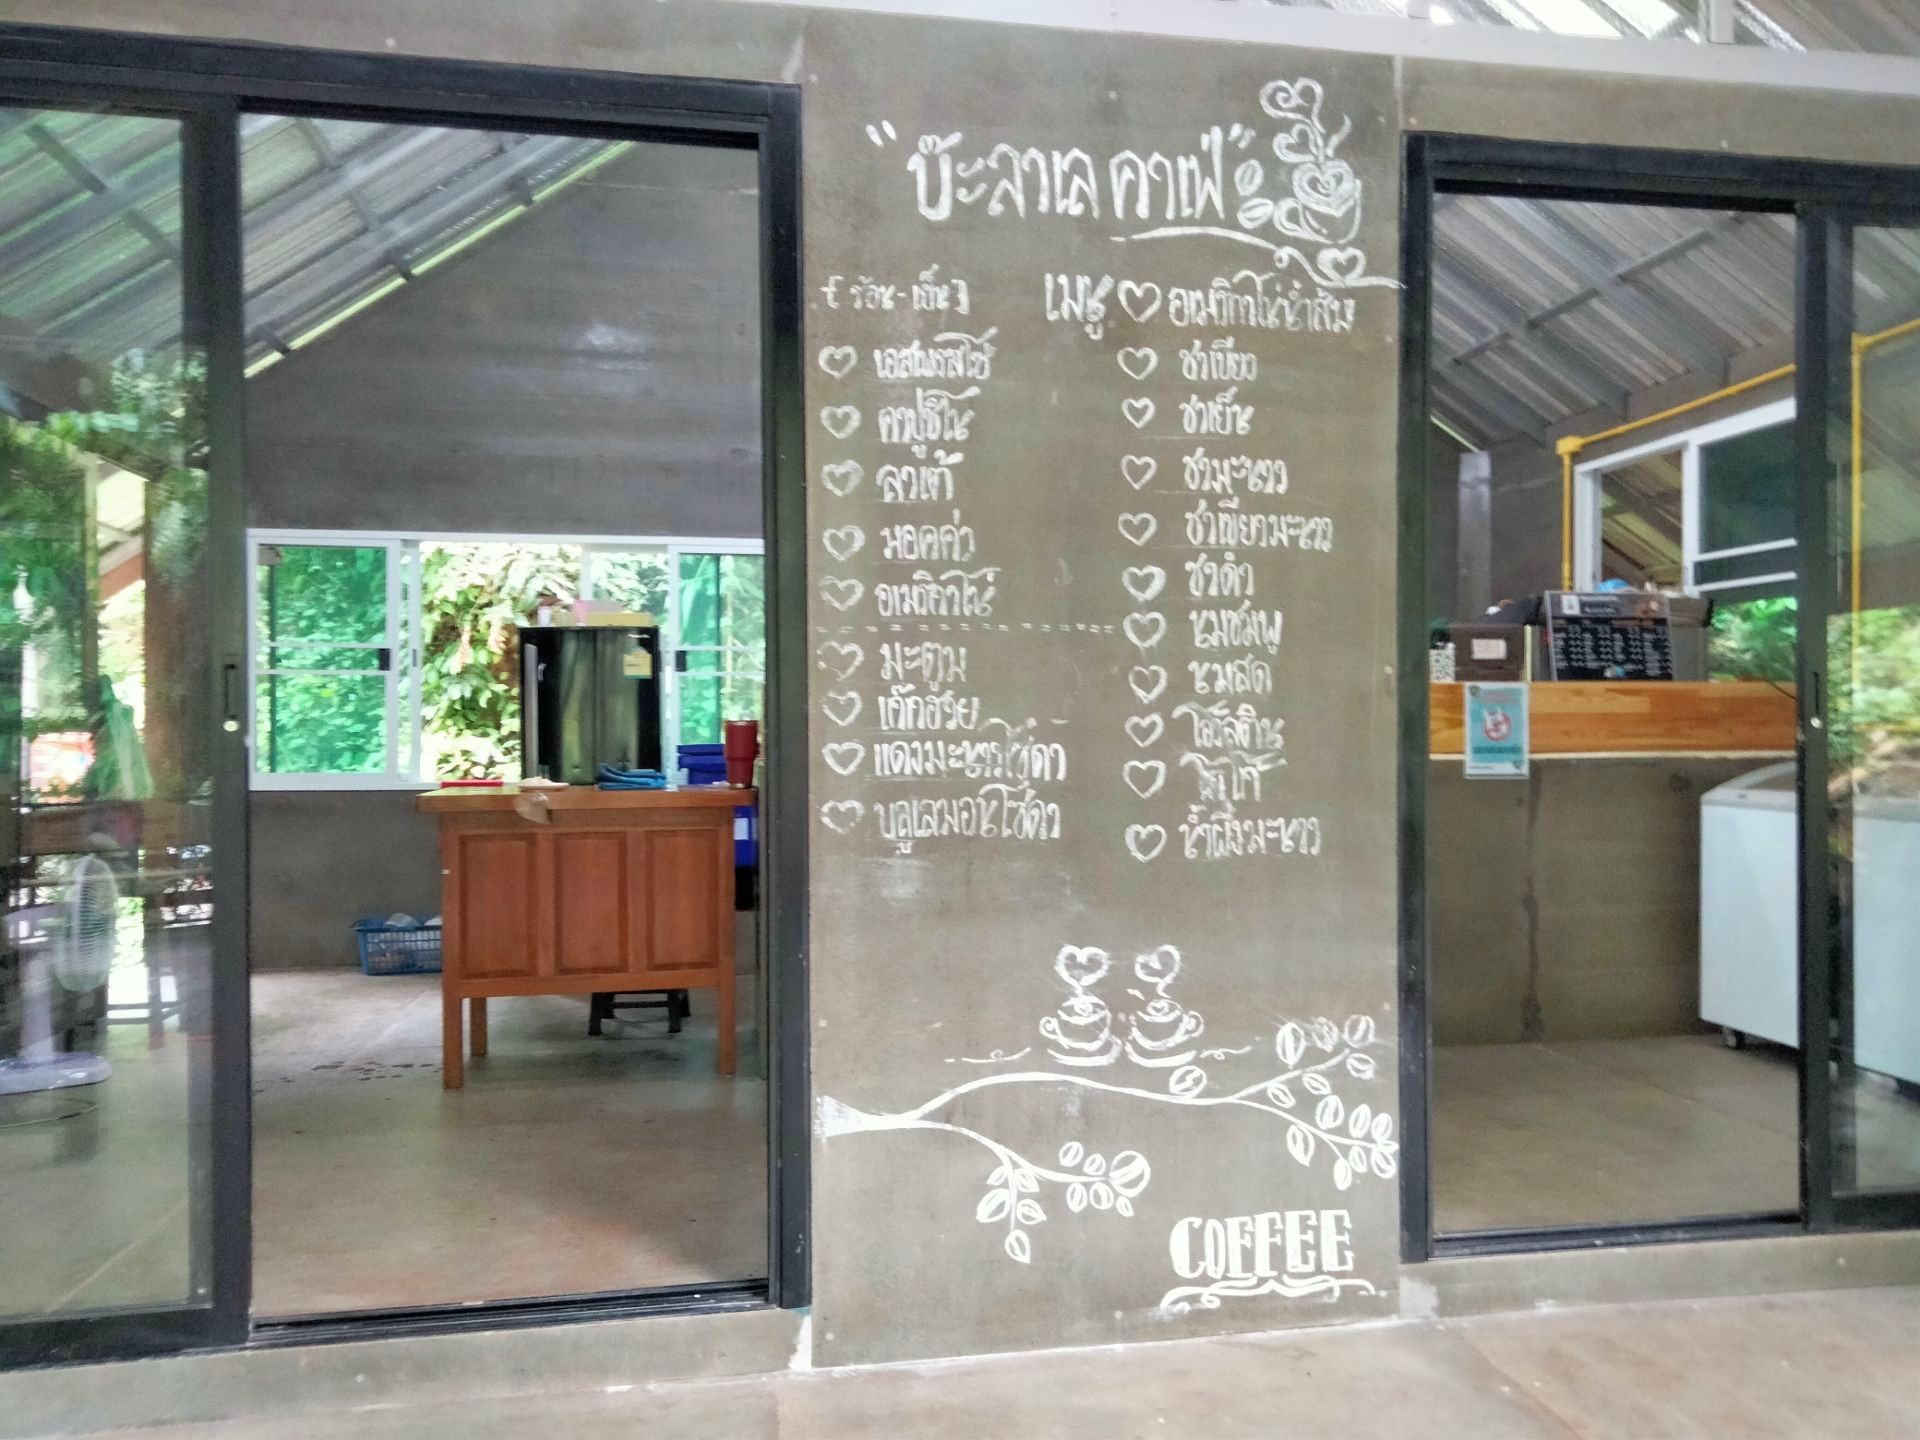 "บ๊ะลาเล คาเฟ่"
{ ร้อน - เย็น }
เมนู
เอสเพรสโซ่
คาปูชิโน่
ลาเต้
มอคค่า
อเมริกาโน่
มะตูม
เก๊กฮวย
แดงมะนาวโซดา
บลูเลมอนโซดา
อเมริกาโน่น้ำส้ม
ชาเขียว
ชาเย็น
ชามะนาว
ชาเขียวมะนาว
ชาดำ
นมชมพู
นมสด
โอวัลติน
โกโก้
น้ำผึ้งมะนาว
COFFEE